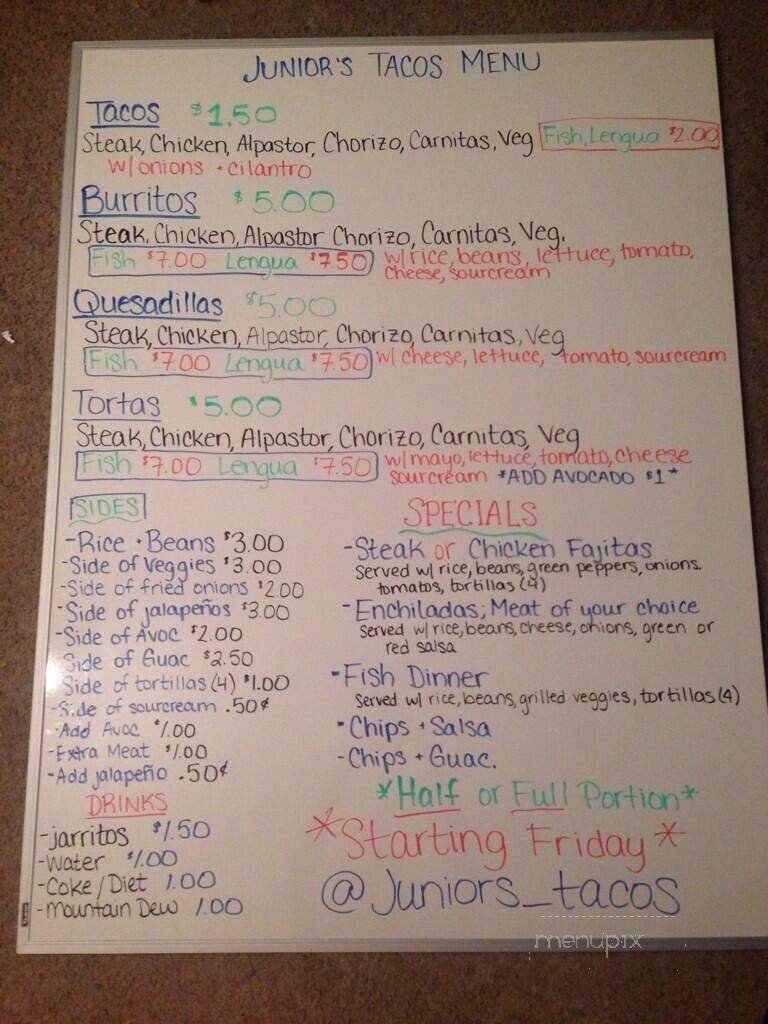 JUNIOR'S TACOS MENU
Tacos $1.50
Steak, Chicken, Alpastor, Chorizo, Carnitas, Veg Fish, Lengua $2.00
w/onions + cilantro
Burritos $5.00
Steak, Chicken, Alpastor Chorizo, Carnitas, Veg.
Fish $7.00 Lengua $7.50 w/rice, beans, lettuce, tomato,
cheese, sourcream
Quesadillas $5.00
Steak, Chicken, Alpastor, Chorizo, Carnitas, Veg
Fish $7.00 Lengua $7.50 w/ cheese, lettuce, tomato, sourcream
Tortas $5.00
Steak, Chicken, Alpastor, Chorizo, Carnitas, Veg
Fish $7.00 Lengua $7.50 w/mayo, lettuce, tomato, cheese
sourcream *ADD AVOCADO $1*
SIDES
-Rice + Beans $3.00
-Side of veggies $3.00
-Side of fried onions $2.00
-Side of jalapeños $3.00
-Side of Avoc $2.00
Side of Guac $2.50
Side of tortillas (4) $1.00
-Side of sourcream .50¢
-Add Avoc $1.00
-Extra Meat $1.00
-Add jalapeño .50¢
DRINKS
-jarritos $1.50
-water $1.00
-Coke/Diet 1.00
-mountain Dew 1.00
SPECIALS
-Steak or Chicken Fajitas
Served w/rice, beans, green peppers, onions.
tomatos, tortillas (4)
-Enchiladas; Meat of your choice
Served w/rice, beans, cheese, onions, green or
red salsa
-Fish Dinner
Served w/rice, beans, grilled veggies, tortillas (4)
-Chips + Salsa
-Chips + Guac.
*Half or Full Portion*
*Starting Friday*
@Juniors_tacos
menupix